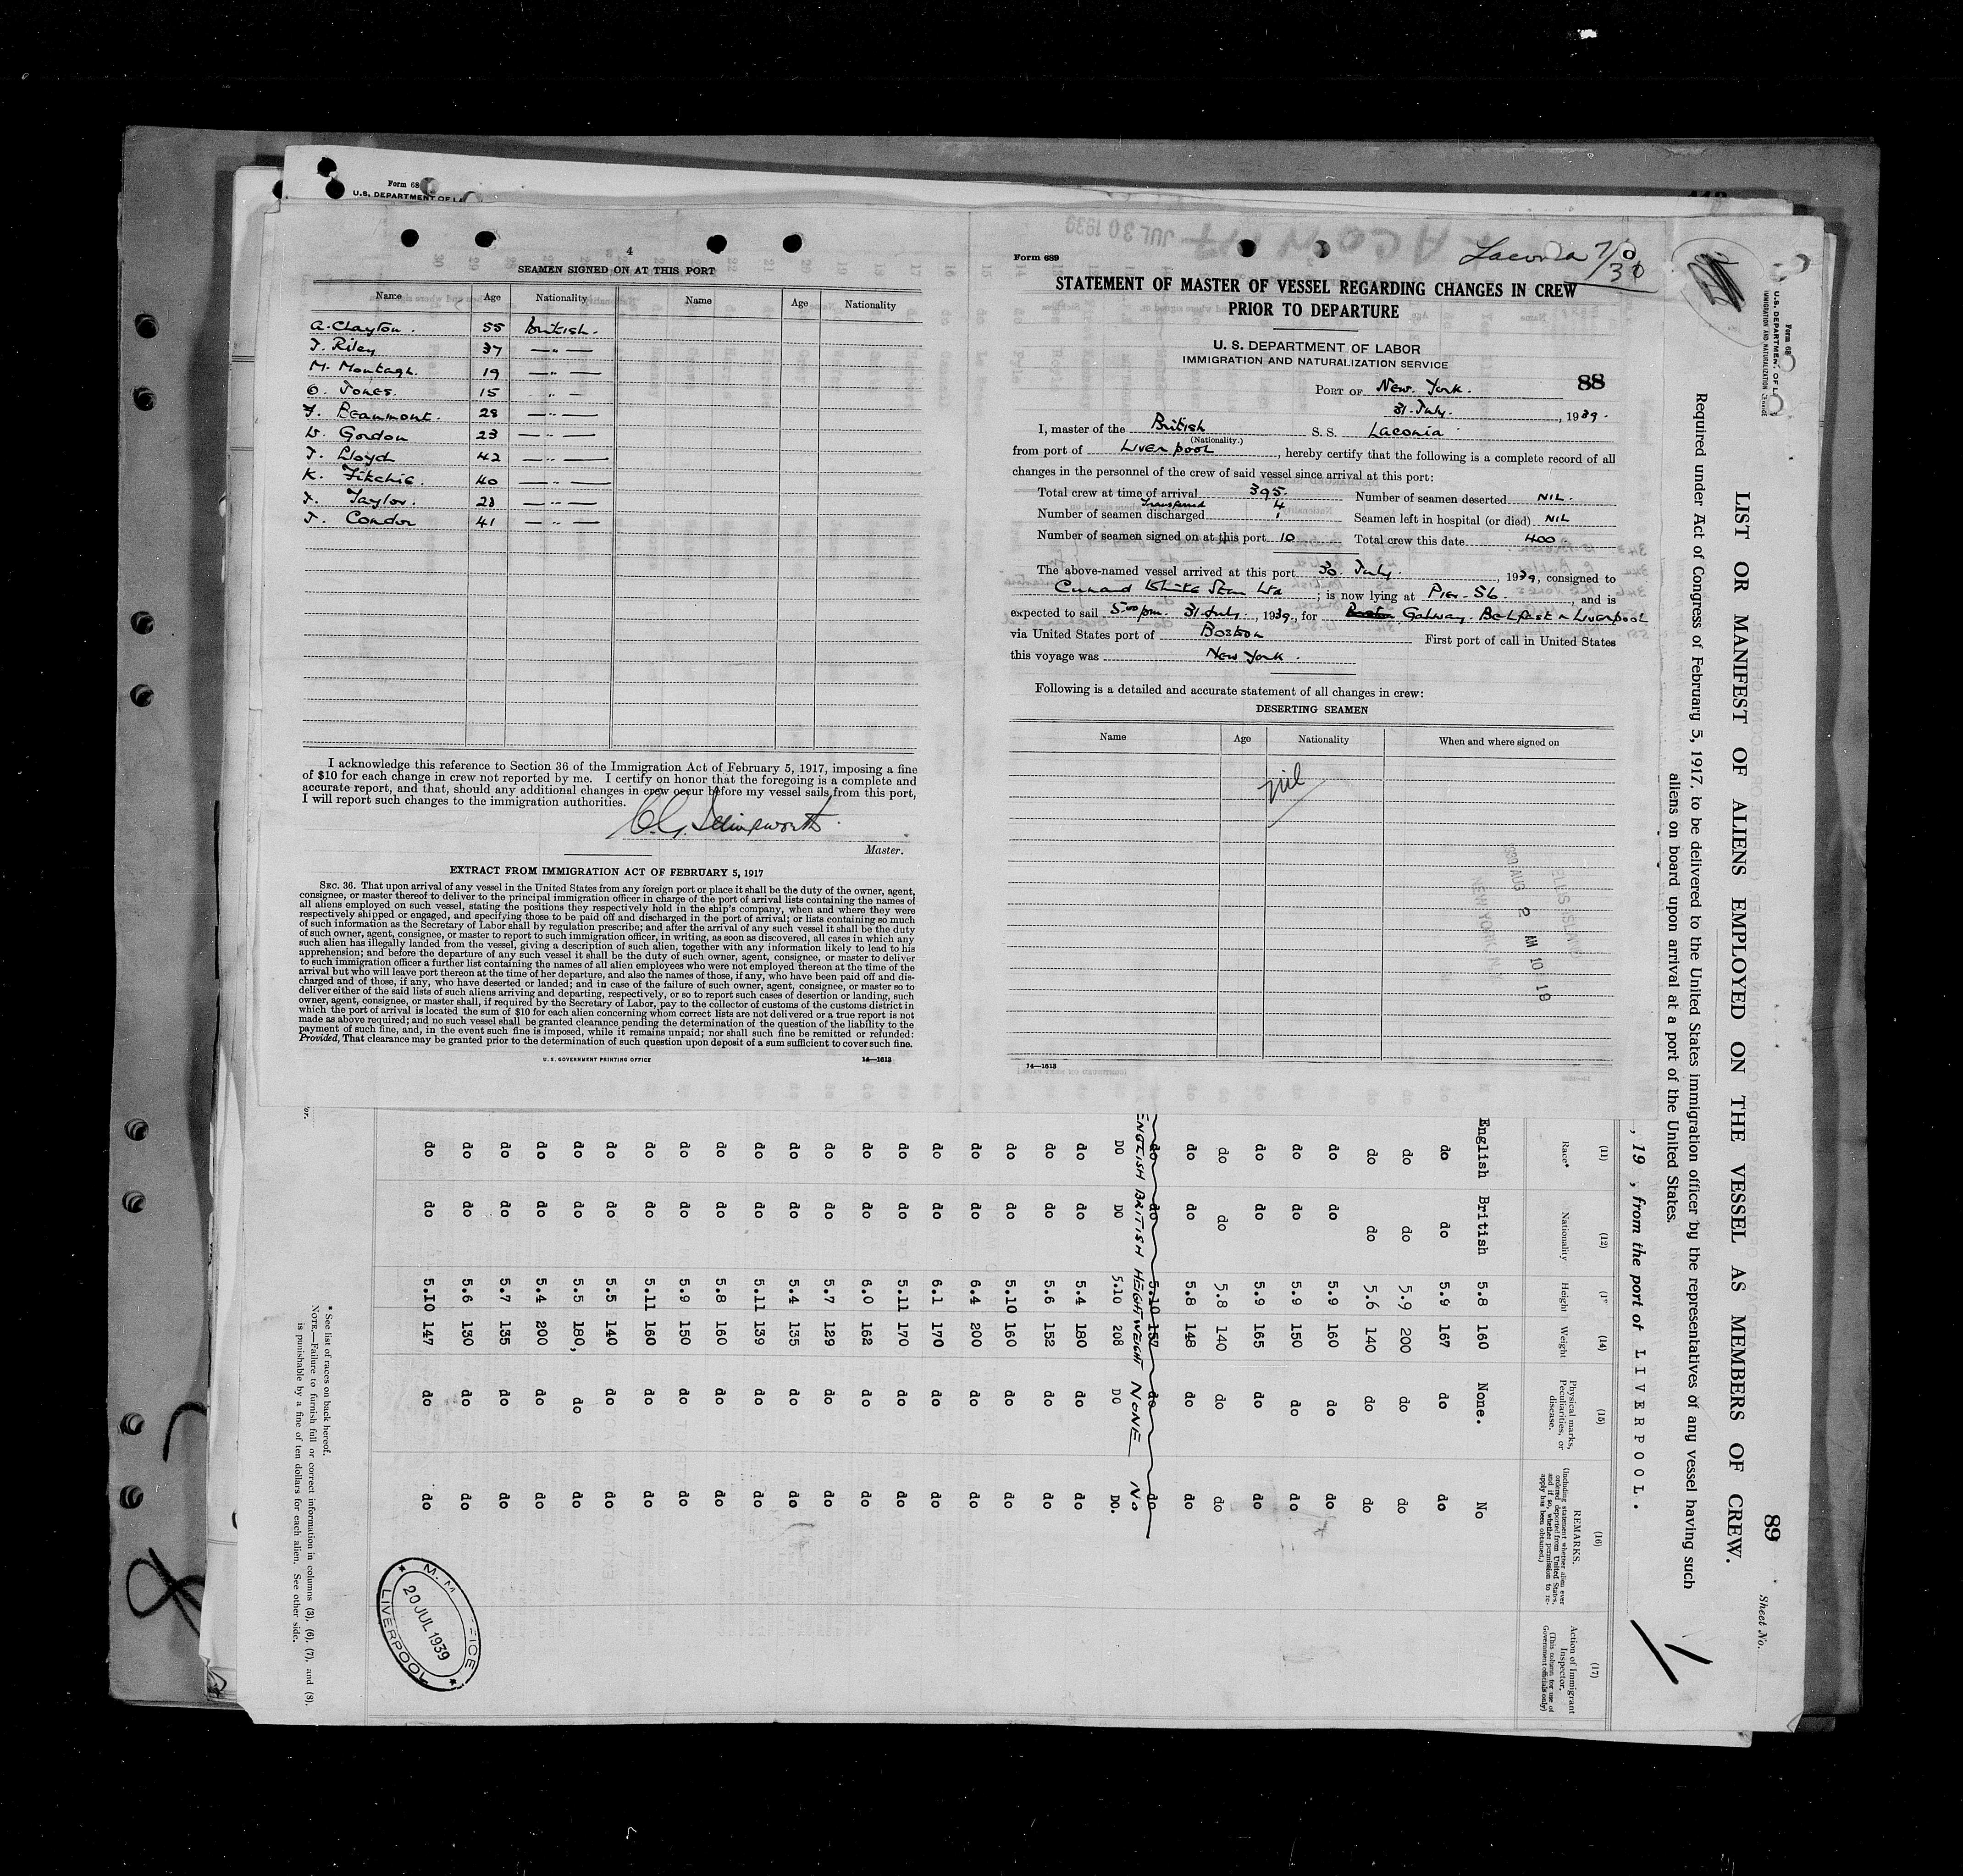 Form 68
U.S. DEPARTMENT OF LA
4
SEAMEN SIGNED ON AT THIS PORT
Name Age Nationality Name Age Nationality
A. Clayton. 55 British.
J. Riley 37 — " —
M. Montagh. 19 — " —
O. Jones. 15 " —
F. Beaumont. 28 — " —
W. Gordon 23 — " —
J. Lloyd 42 — " —
K. Fitchie. 40 — " —
J. Taylor. 28 — " —
J. Condor 41 — " —
I acknowledge this reference to Section 36 of the Immigration Act of February 5, 1917, imposing a fine
of $10 for each change in crew not reported by me. I certify on honor that the foregoing is a complete and
accurate report, and that, should any additional changes in crew occur before my vessel sails from this port,
I will report such changes to the immigration authorities.
Master.
EXTRACT FROM IMMIGRATION ACT OF FEBRUARY 5, 1917
SEC. 36. That upon arrival of any vessel in the United States from any foreign port or place it shall be the duty of the owner, agent,
consignee, or master thereof to deliver to the principal immigration officer in charge of the port of arrival lists containing the names of
all aliens employed on such vessel, stating the positions they respectively hold in the ship's company, when and where they were
respectively shipped or engaged, and specifying those to be paid off and discharged in the port of arrival; or lists containing so much
of such information as the Secretary of Labor shall by regulation prescribe; and after the arrival of any such vessel it shall be the duty
of such owner, agent, consignee, or master to report to such immigration officer, in writing, as soon as discovered, all cases in which any
such alien has illegally landed from the vessel, giving a description of such alien, together with any information likely to lead to his
apprehension; and before the departure of any such vessel it shall be the duty of such owner, agent, consignee, or master to deliver
to such immigration officer a further list containing the names of all alien employees who were not employed thereon at the time of the
arrival but who will leave port thereon at the time of her departure, and also the names of those, if any, who have been paid off and dis-
charged and of those, if any, who have deserted or landed; and in case of the failure of such owner, agent, consignee, or master so to
deliver either of the said lists of such aliens arriving and departing, respectively, or so to report such cases of desertion or landing, such
owner, agent, consignee, or master shall, if required by the Secretary of Labor, pay to the collector of customs of the customs district in
which the port of arrival is located the sum of $10 for each alien concerning whom correct lists are not delivered or a true report is not
made as above required; and no such vessel shall be granted clearance pending the determination of the question of the liability to the
payment of such fine, and, in the event such fine is imposed, while it remains unpaid; nor shall such fine be remitted or refunded:
Provided, That clearance may be granted prior to the determination of such question upon deposit of a sum sufficient to cover such fine.
U. S. GOVERNMENT PRINTING OFFICE 14—1613
Laconia 7/30
Form 689
STATEMENT OF MASTER OF VESSEL REGARDING CHANGES IN CREW
PRIOR TO DEPARTURE
U. S. DEPARTMENT OF LABOR
IMMIGRATION AND NATURALIZATION SERVICE
88
PORT OF New York.
31 July. , 1939.
I, master of the British S. S. Laconia
(Nationality.)
from port of Liverpool , hereby certify that the following is a complete record of all
changes in the personnel of the crew of said vessel since arrival at this port:
Total crew at time of arrival 395. Number of seamen deserted NIL.
Transferred 4
Number of seamen discharged 1 Seamen left in hospital (or died) NIL
Number of seamen signed on at this port 10 Total crew this date 400.
The above-named vessel arrived at this port 30 July. , 1939, consigned to
Cunard White Star Ltd ; is now lying at Pier 56. , and is
expected to sail 5.00 pm. 31 July , 1939, for Boston Galway Belfast & Liverpool
via United States port of Boston First port of call in United States
this voyage was New York.
Following is a detailed and accurate statement of all changes in crew:
DESERTING SEAMEN
Name Age Nationality When and where signed on
nil
ELLIS ISLAND
1939 AUG 2 AM 10 19
NEW YORK N.Y.
14—1613
Form 68
U.S. DEPARTMENT OF L
IMMIGRATION AND NATURALIZATION
89
Sheet No.
LIST OR MANIFEST OF ALIENS EMPLOYED ON THE VESSEL AS MEMBERS OF CREW.
Required under Act of Congress of February 5, 1917, to be delivered to the United States immigration officer by the representatives of any vessel having such
aliens on board upon arrival at a port of the United States.
, 19 , from the port of LIVERPOOL.
(11) (12) (14) (15) (16) (17)
Race* Nationality Height Weight Physical marks, Peculiarities, or disease. REMARKS. (Including statement whether alien ever ordered deported from United States, and if so, whether permission to re-apply has been obtained.) Action of Immigrant Inspector. (This column for use of Government officials only)
English British 5.8 160 None. No
do do 5.9 167 do do
do do 5.9 200 do do
do do 5.6 140 do do
do do 5.9 160 do do
do do 5.9 150 do do
do do 5.9 165 do do
do do 5.8 140 do do
do do 5.8 148 do do
do do 5.10 157 do do
ENGLISH BRITISH HEIGHT WEIGHT NONE NO
DO DO 5.10 208 DO DO.
do do 5.4 180 do do
do do 5.6 152 do do
do do 5.10 160 do do
do do 6.4 200 do do
do do 6.1 170 do do
do do 5.11 170 do do
do do 6.0 162 do do
do do 5.7 129 do do
do do 5.4 135 do do
do do 5.11 139 do do
do do 5.8 160 do do
do do 5.9 150 do do
do do 5.11 160 do do
do do 5.5 140 do do
do do 5.5 180, do do
do do 5.4 200 do do
do do 5.7 135 do do
do do 5.6 130 do do
do do 5.10 147 do do
* See list of races on back hereof.
NOTE.—Failure to furnish full or correct information in columns (3), (6), (7), and (8),
is punishable by a fine of ten dollars for each alien. See other side.
20 JUL 1939
LIVERPOOL